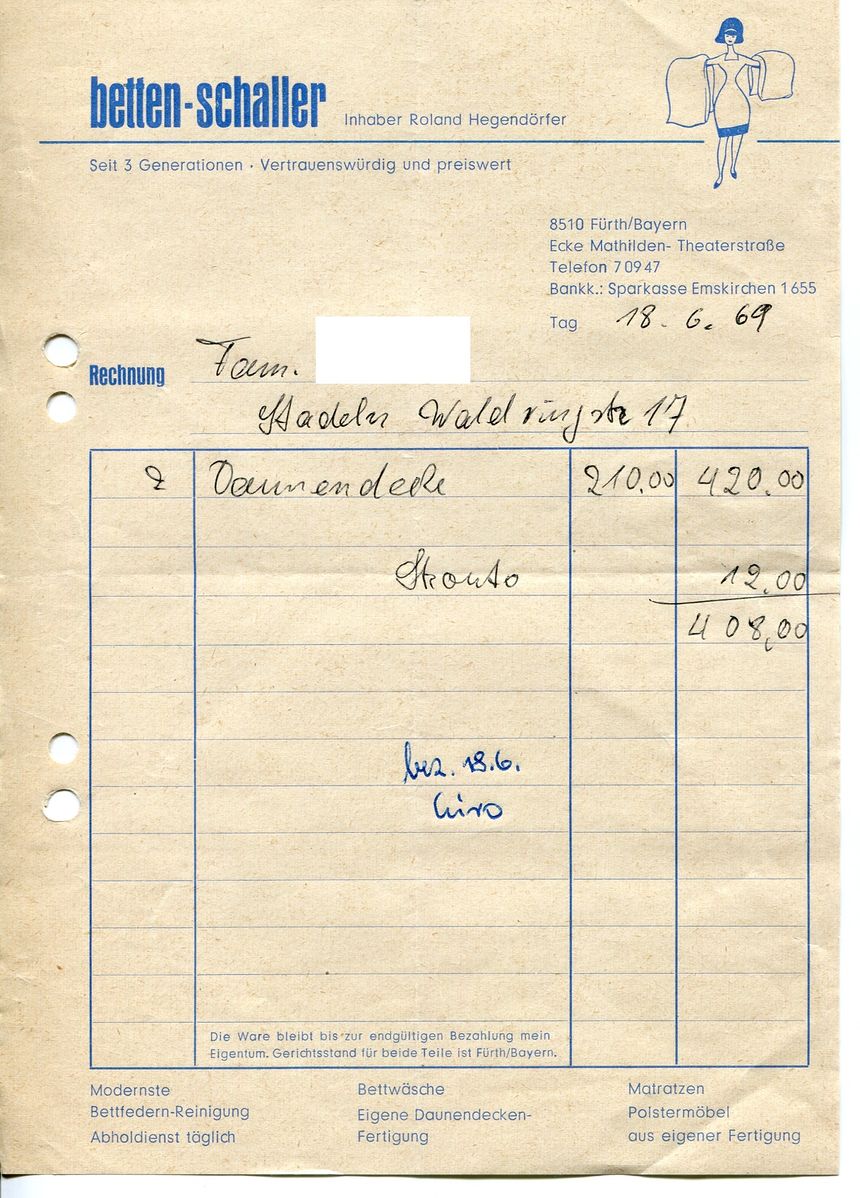 betten-schaller Inhaber Roland Hegendörfer
Seit 3 Generationen · Vertrauenswürdig und preiswert
8510 Fürth/Bayern
Ecke Mathilden- Theaterstraße
Telefon 70947
Bankk.: Sparkasse Emskirchen 1655
Tag 18. 6. 69
Rechnung Fam.
Stadeln Waldringstr 17
2 Daunendecke 210.00 420.00
Skonto 12.00
408,00
bez. 18.6.
Giro
Die Ware bleibt bis zur endgültigen Bezahlung mein
Eigentum. Gerichtsstand für beide Teile ist Fürth/Bayern.
Modernste
Bettfedern-Reinigung
Abholdienst täglich
Bettwäsche
Eigene Daunendecken-
Fertigung
Matratzen
Polstermöbel
aus eigener Fertigung